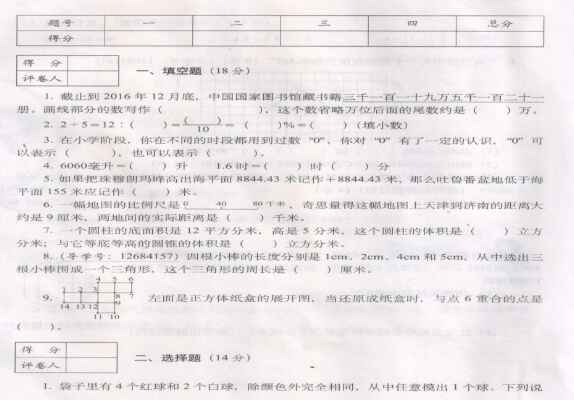 题号 一 二 三 四 总分
得分
得 分
评卷人
一、填空题（18 分）
1. 截止到 2016 年 12 月底，中国国家图书馆藏书籍三千一百一十九万五千一百二十一
册。画线部分的数写作（ ），这个数省略万位后面的尾数约是（ ）万。
2. 2÷5＝12：（ ）＝( )/10＝（ ）%＝（ ）（填小数）
3. 在小学阶段，你在不同的时段都用到过数“0”，你对“0”有了一定的认识，“0”可
以表示（ ），也可以表示（ ）。
4. 6060毫升＝（ ）升 1.6时＝（ ）时（ ）分
5. 如果把珠穆朗玛峰高出海平面 8844.43 米记作＋8844.43 米，那么吐鲁番盆地低于海
平面 155 米应记作（ ）米。
6. 一幅地图的比例尺是 0 40 80 千米，奇思量得这幅地图上天津到济南的距离大
约是 9 厘米，两地间的实际距离是（ ）千米。
7. 一个圆柱的底面积是 12 平方分米，高是 5 分米，这个圆柱的体积是（ ）立方
分米；与它等底等高的圆锥的体积是（ ）立方分米。
8.（导学号：12684157）四根小棒的长度分别是 1cm、2cm、4cm 和 5cm，从中选出三
根小棒围成一个三角形，这个三角形的周长是（ ）厘米。
4 5 6
1 2 3
9. 8 7 左面是正方体纸盒的展开图，当还原成纸盒时，与点 6 重合的点是
9
14 13 12
11 10
（ ）。
得 分
评卷人
二、选择题（14 分）
1. 袋子里有 4 个红球和 2 个白球，除颜色外完全相同，从中任意摸出 1 个球。下列说